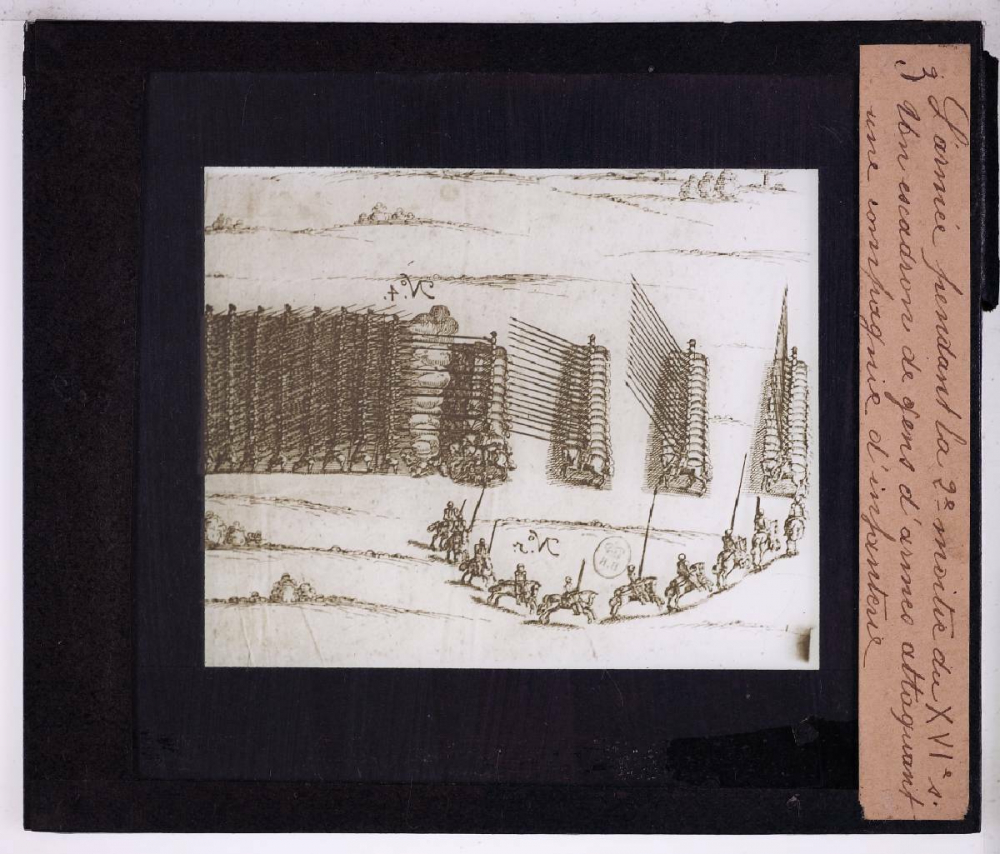 L'armée pendant la 2e moitié du XVIe s.
3) Un escadron de gens d'armes attaquant
une compagnie d'infanterie
No. 4.
No. 5.